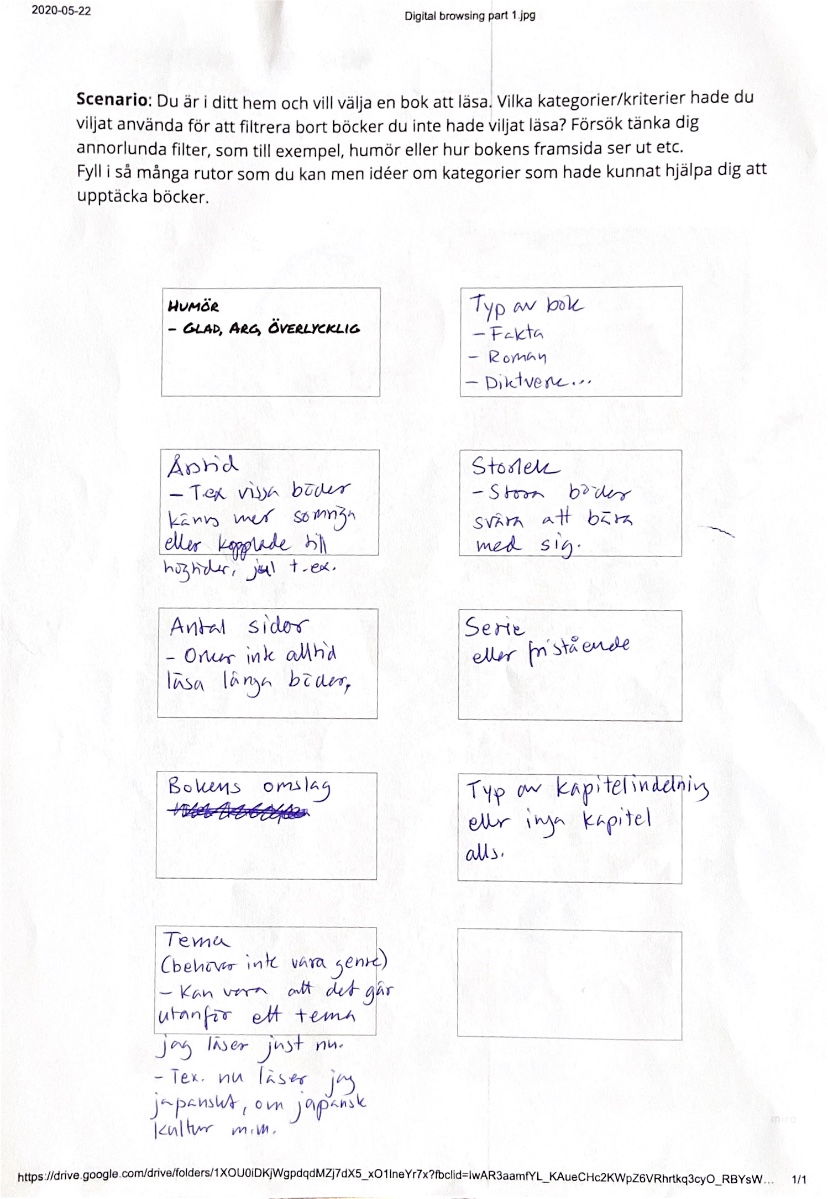 2020-05-22
Digital browsing part 1.jpg
Scenario: Du är i ditt hem och vill välja en bok att läsa. Vilka kategorier/kriterier hade du
viljat använda för att filtrera bort böcker du inte hade viljat läsa? Försök tänka dig
annorlunda filter, som till exempel, humör eller hur bokens framsida ser ut etc.
Fyll i så många rutor som du kan men idéer om kategorier som hade kunnat hjälpa dig att
upptäcka böcker.
HUMÖR
- GLAD, ARG, ÖVERLYCKLIG
Typ av bok
- Fakta
- Roman
- Diktverk...
Årstid
- Tex vissa böcker
känns mer somriga
eller kopplade till
högtider, jul t.ex.
Storlek
- Stora böcker
svåra att bära
med sig.
Antal sidor
- Orkar inte alltid
läsa långa böcker,
Serie
eller fristående
Bokens omslag
Typ av kapitelindelning
eller inga kapitel
alls.
Tema
(behöver inte vara genre)
- Kan vara att det går
utanför ett tema
jag läser just nu.
- Tex. nu läser jag
japanskt, om japansk
kultur m.m.
miro
https://drive.google.com/drive/folders/1XOU0iDKjWgpdqdMZj7dX5_xO1IneYr7x?fbclid=IwAR3aamfYL_KAueCHc2KWpZ6VRhrtkq3cyO_RBYsW...
1/1